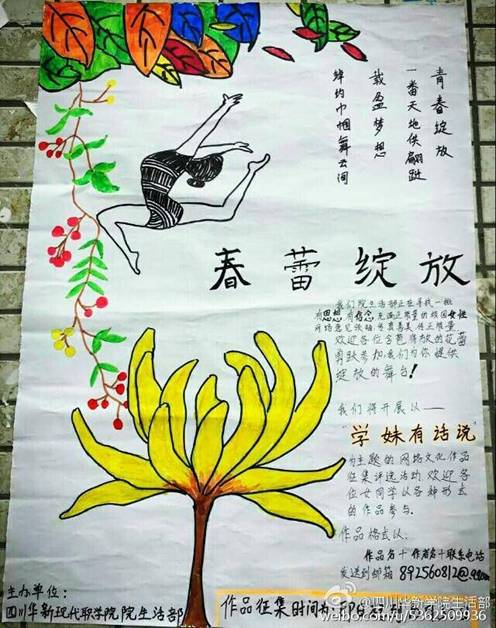 青春绽放
一番天地佚翩跹
载盈梦想
绰约巾帼舞云间
春蕾绽放
我们院生活部正在寻找一批
有思想有信念充满正能量的校园女性
欢迎各位含苞待放的花蕾
踊跃参加,我们为你提供
绽放的舞台!
我们将开展以——
“学妹有话说”
为主题的网络文化作品
征集评选活动欢迎各
位女同学以各种形式
的作品参与.
作品格式以.
作品名+作者名+联系电话
发送到邮箱
主办单位:
四川华新现代职学院院生活部
作品征集时间为:即日
@四川华新学院生活部
weibo.com/u/5362509936